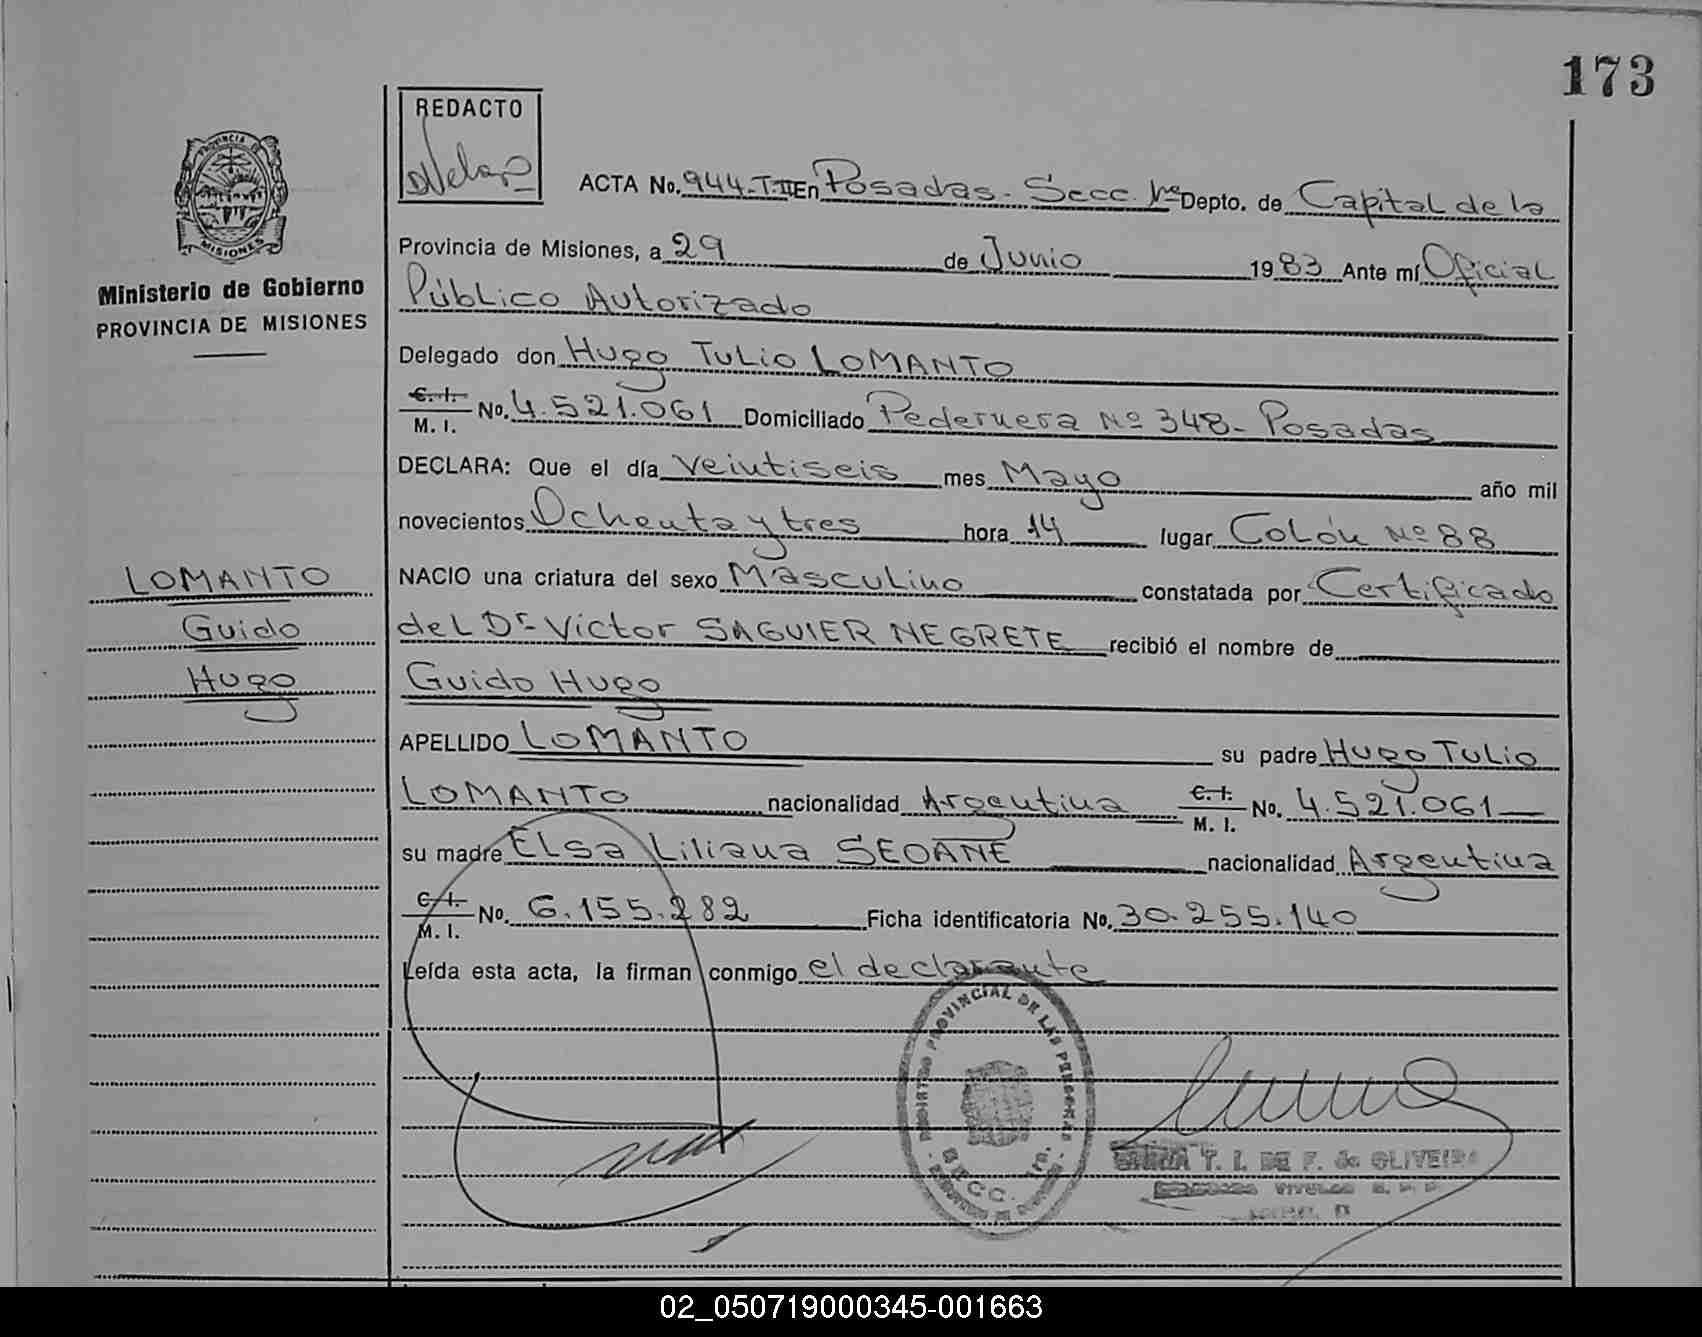 173
REDACTO
PROVINCIA DE
MISIONES
Ministerio de Gobierno
PROVINCIA DE MISIONES
ACTA No. 944-T-II En Posadas - Secc. 1ra Depto. de Capital de la
Provincia de Misiones, a 29 de Junio 1983 Ante mí Oficial
Público Autorizado
Delegado don Hugo Tulio LOMANTO
C. I. M. I. No. 4.521.061 Domiciliado Pedernera Nº 348- Posadas
DECLARA: Que el día veintiseis mes Mayo año mil
novecientos Ochenta y tres hora 14 lugar Colón Nº 88
LOMANTO
Guido
Hugo
NACIO una criatura del sexo Masculino constatada por Certificado
del Dr Victor SAGUIER NEGRETE recibió el nombre de
Guido Hugo
APELLIDO LOMANTO su padre Hugo Tulio
LOMANTO nacionalidad Argentina C. I. M. I. No. 4.521.061
su madre Elsa Liliana SEOANE nacionalidad Argentina
C. I. M. I. No. 6.155.282 Ficha identificatoria No. 30.255.140
Leída esta acta, la firman conmigo el declarante
REGISTRO PROVINCIAL DE LAS PERSONAS
SECC. 1ra.
T. I. DE F. de OLIVEIRA
02_050719000345-001663